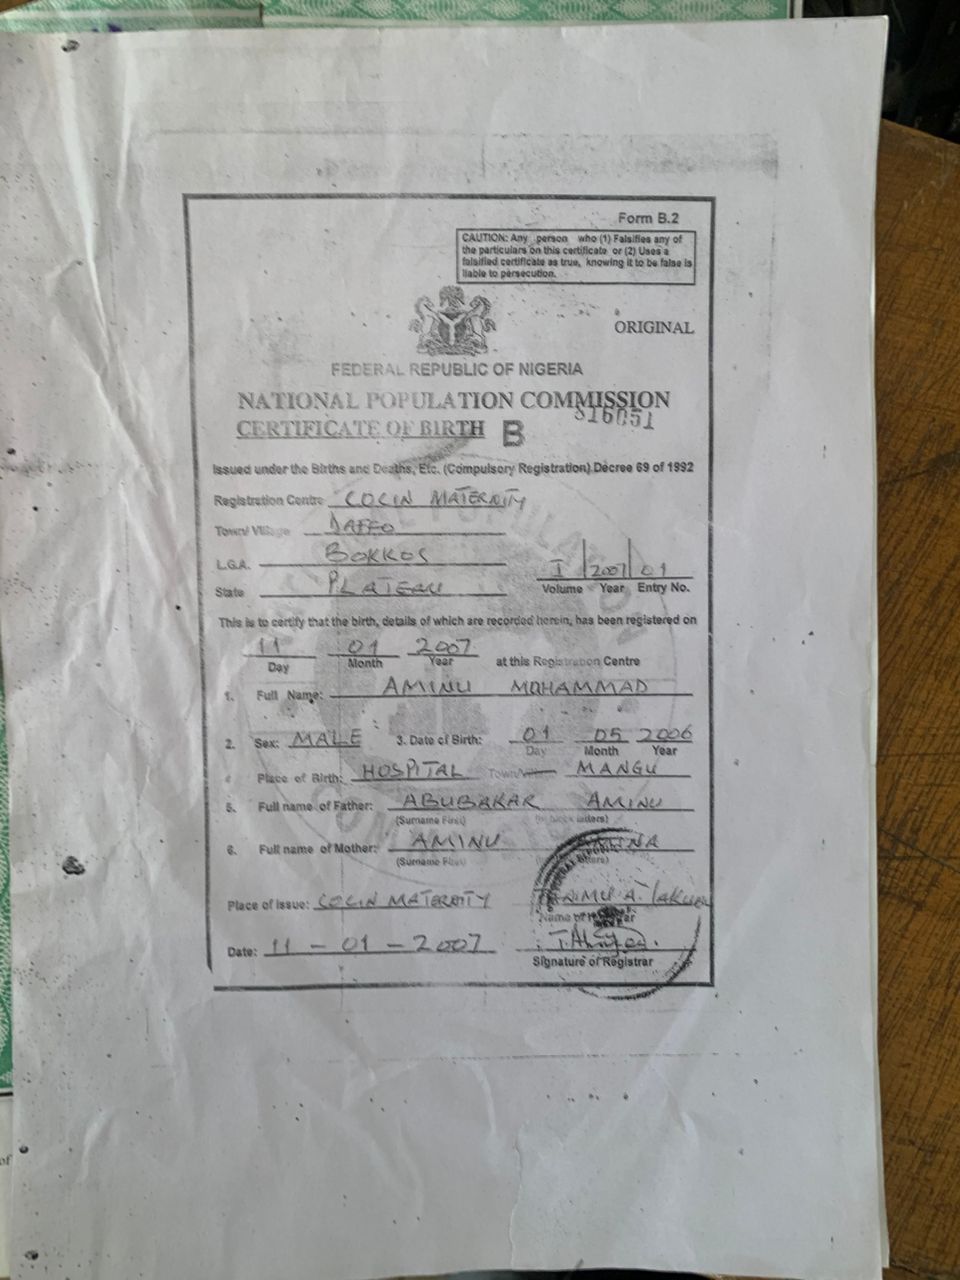 Form B.2
CAUTION: Any person who (1) Falsifies any of
the particulars on this certificate or (2) Uses a
falsified certificate as true, knowing it to be false is
liable to persecution.
ORIGINAL
FEDERAL REPUBLIC OF NIGERIA
NATIONAL POPULATION COMMISSION
816051
CERTIFICATE OF BIRTH B
Issued under the Births and Deaths, Etc. (Compulsory Registration) Decree 69 of 1992
Registration Centre COCIN MATERNITY
Town/Village DAFFO
L.G.A. BOKKOS
I 2007 01
State PLATEAU
Volume Year Entry No.
This is to certify that the birth, details of which are recorded herein, has been registered on
11 01 2007
Day Month Year at this Registration Centre
1. Full Name: AMINU MOHAMMAD
2. Sex: MALE 3. Date of Birth: 01 05 2006
Day Month Year
Place of Birth: HOSPITAL Town/ MANGU
5. Full name of Father: ABUBAKAR AMINU
(Surname First) (In block letters)
6. Full name of Mother: AMINU
(Surname First)
Place of Issue: COCIN MATERNITY
Name of
Date: 11 - 01 - 2007
Signature of Registrar
of